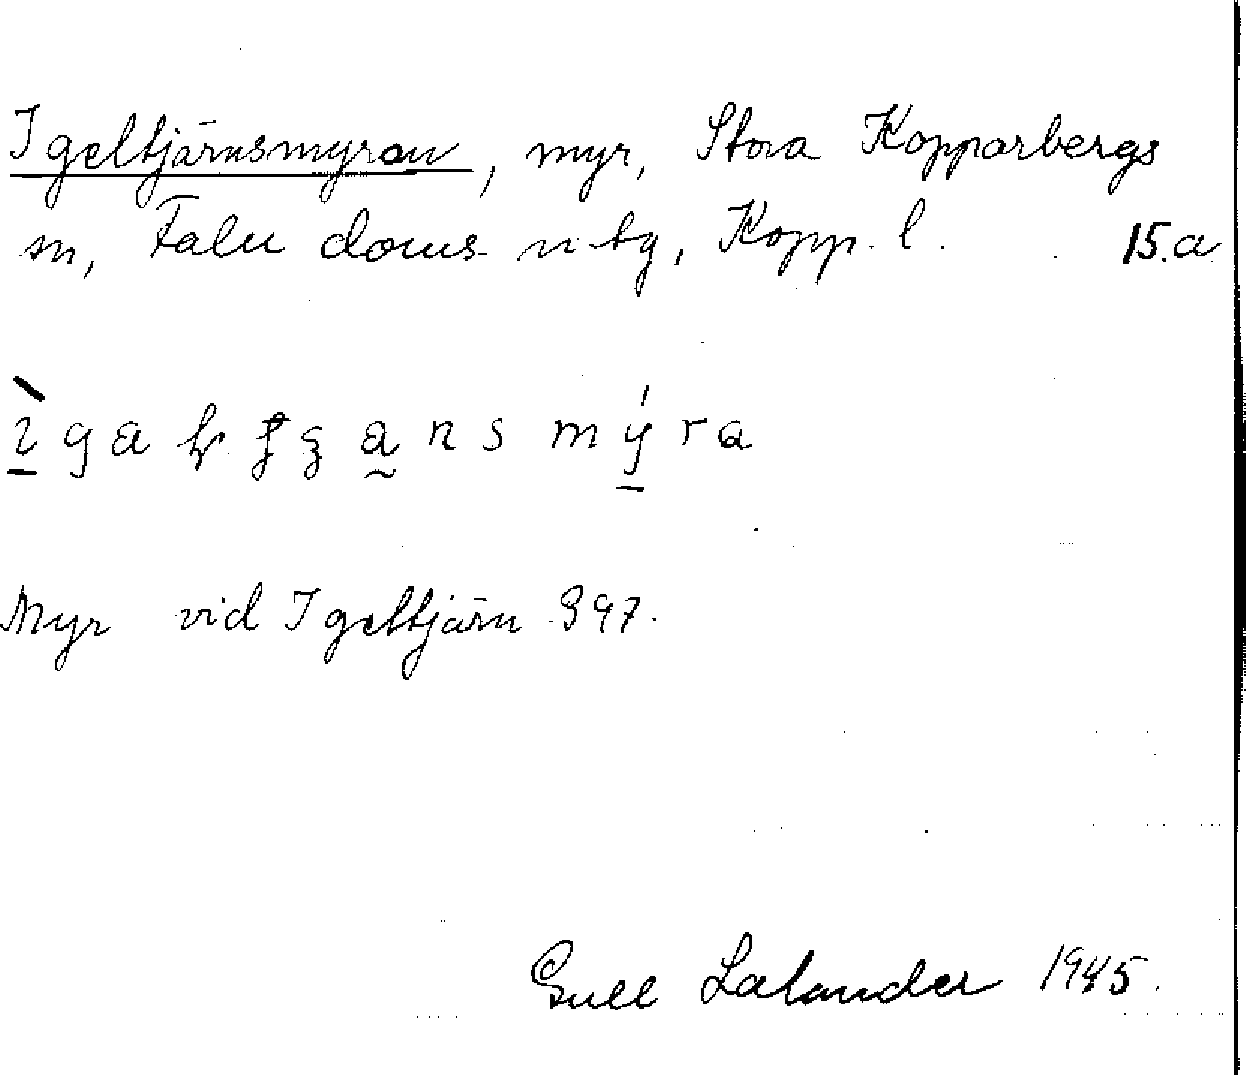 Igeltjärnsmyran, myr, Stora Kopparbergs
sn, Falu doms. n. tg, Kopp. l. 15.a
Myr vid Igeltjärn 397.
Gull Lalander 1945.